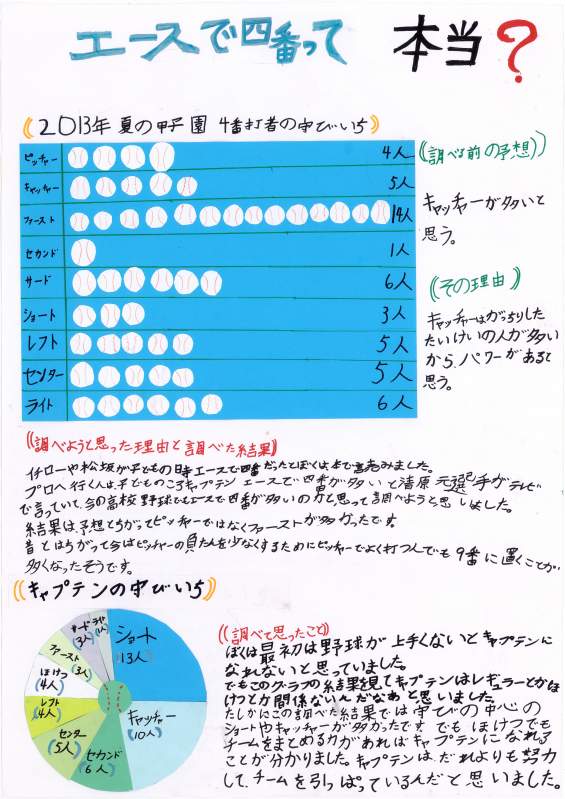 エースで四番って 本当?
2013年 夏の甲子園 4番打者の守びいち
ピッチャー 4人
キャッチャー 5人
ファースト 14人
セカンド 1人
サード 6人
ショート 3人
レフト 5人
センター 5人
ライト 6人
(調べる前の予想)
キャッチャーが多いと
思う。
(その理由)
キャッチャーはがっちりした
たいけいの人が多い
から、パワーがあると
思う。
(調べようと思った理由と調べた結果)
イチローや松坂が子どもの時エースで四番だったとぼくは本で読みました。
プロへ行く人は、子どものころキャプテン エースで四番が多いと清原元選手がテレビ
で言っていて、今の高校野球でもエースで四番が多いのかと思って調べようと思いました。
結果は、予想とちがってピッチャーではなくファーストが多かったです。
昔とはちがって今はピッチャーの負たんを少なくするためにピッチャーでよく打つ人でも9番に置くことが
多くなったそうです。
キャプテンの守びいち
ショート
(13人)
キャッチャー
(10人)
セカンド
(6人)
センター
(5人)
レフト
(4人)
ほけつ
(4人)
ファースト
(3人)
サード
(3人)
ライト
(調べて思ったこと)
ぼくは最初は野球が上手くないとキャプテンに
なれないと思っていました。
でもこのグラフの結果を見てキャプテンはレギュラーとかほ
けつとか関係ないんだなあと思いました。
たしかにこの調べた結果では守びの中心の
ショートやキャッチャーが多かったです でもほけつでも
チームをまとめる力があればキャプテンになれる
ことが分かりました。キャプテンはだれよりも努力
して、チームを引っぱっているんだと思いました。